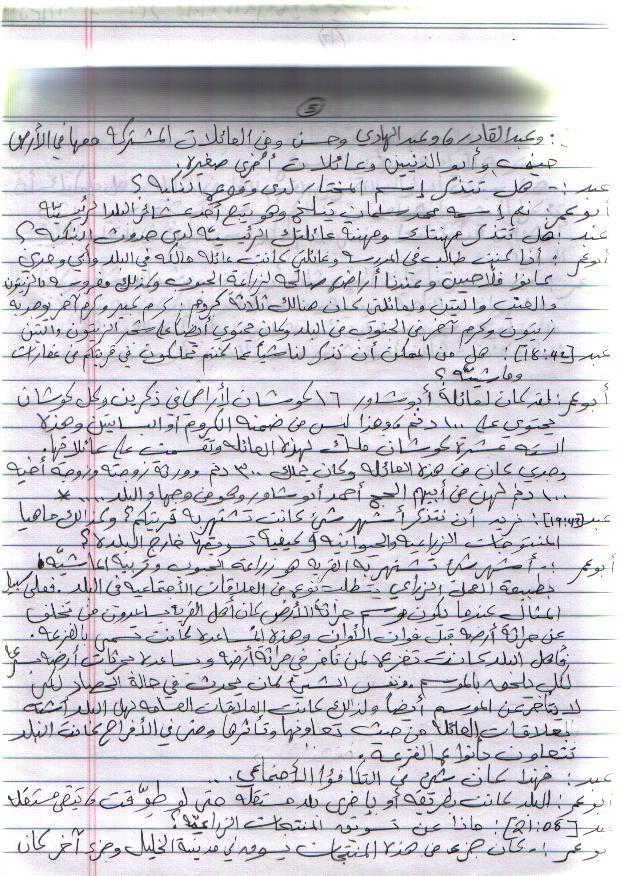 5
: وعبد القادر وعبد الهادي وحسن وفي العائلات المشتركة معها في الأرض
ضيف وأبو الزنين وعائلات أخرى صغيرة.
عبد :- هل تتذكر إسم المختار لدى وقوع النكبة؟
أبو عمر: نعم إسمه محمد سلمان وهو يتبع أحد عشائر البلد الرئيسية
عبد : هل تتذكر مهنتك ومهنة عائلتك الرئيسية لدى حدوث النكبة؟
أبو عمر : أنا كنت طالب في المدرسة وعائلتي كانت عائلة مالكة في البلد وأبي وجدي
كانوا فلاحين وعندنا أراضي صالحة لزراعة الحبوب وكذلك مغروسة بالزيتون
والعنب والتين ولعائلتي كان هنالك ثلاثة كروم كرم كبير وكرم آخر يوجد به
زيتون وكرم آخر في الجنوب من البلد وكان يحتوي أيضاً على شجر الزيتون والتين
عبد [16:42]: هل من الممكن أن تذكر لنا شيئاً عما كنتم تملكون في قريتكم من عقارات
وماشية؟
أبو عمر: لقد كان لعائلة أبو شاور 16 كوشان لأراضي في ذكرين وكل كوشان
يحتوي على 100 دنم وهذا ليس من ضمنه الكروم أو البساتين وهذه
الستة عشرة كوشان ملك لهذه العائلة وتقسمت على عائلاتها.
وجدي كان من هذه العائلة وكان يملك 300 دنم وورثة زوجته وزوجة أخيه
100 دنم لهن من أبيهم الحج أحمد أبو شاور وبحوض وجها والبلد .... *
عبد [19:43]: نريد أن نتذكر أشهر شيء كانت تشتهر به قريتكم؟ وكذلك ماهيا
المنتوجات الزراعية والحيوانية وكيفية تسويقها خارج البلدة؟
أبو عمر :- أشهر شيء تشتهر به القرية هو زراعة الحبوب وتربية الماشية.
طبيعة العمل الزراعي يتطلب نوع من العلاقات الإجتماعية في البلد. فعلى سبيل
المثال عندما يكون موسم حراثة الأرض كان أهل القرية يساعدون من تخلف
عن حراثة أرضه قبل فوات الأوان وهذه المساعدة كانت تسمى بالفزعة.
فأهل البلد كانت تفزع لمن تأخر في حراثة أرضه ومساعدة بحراث أرضه سريعا
لكي يلحقه بالموسم. ونفس الشيء كان يحدث في حالة الحصاد لكي
لا يتأخر عن الموسم أيضاً ولذلك كانت العلاقات العامة لهل البلد أشبه
بعلاقات العائلة من حيث تعاونها وتأثرها وحتى في الأفراح كانت البلد
تتعاون بأنواع الفزعة.
عبد : فهنا كان شيء من التكافؤ الاجتماعي...
أبو عمر: البلد كانت بطريقة أو بأخرى بلد مستقلة حتى لو طوقت تبقى مستقلة
عبد [21:08]: ماذا عن تسويق المنتجات الزراعية؟
بو عمر :- كان جزء من هذه المنتجات يسوق في مدينة الخليل وجزء آخر كان